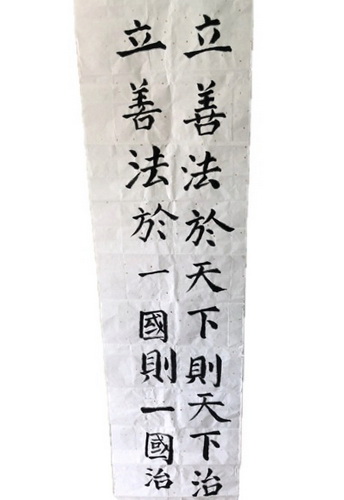 立善法於天下則天下治
立善法於一國則一國治